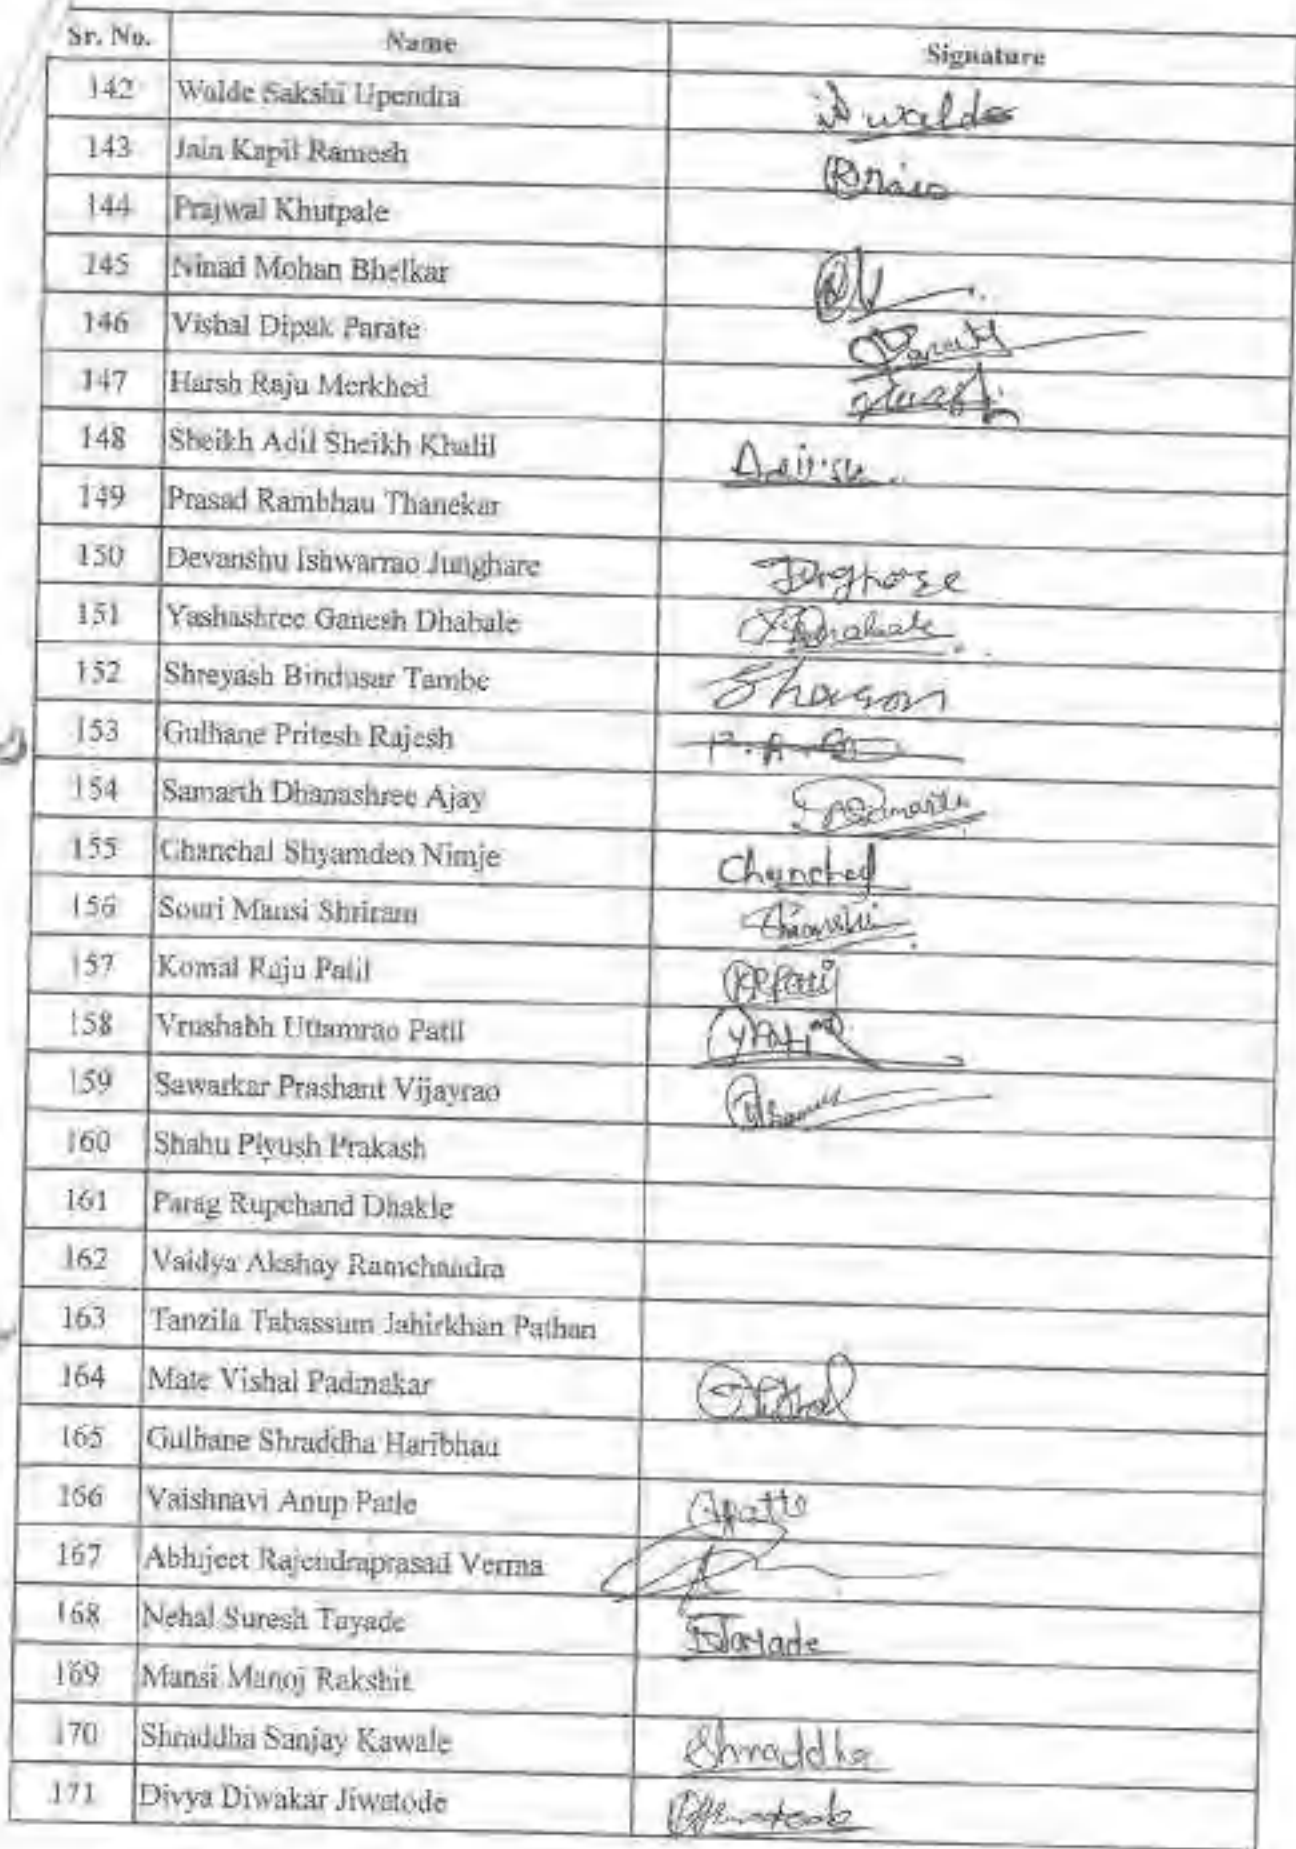 Sr. No. Name Signature
142 Walde Sakshi Upendra
143 Jain Kapil Ramesh
144 Prajwal Khutpale
145 Ninad Mohan Bhelkar
146 Vishal Dipak Parate
147 Harsh Raju Merkhed
148 Sheikh Adil Sheikh Khalil
149 Prasad Rambhau Thanekar
150 Devanshu Ishwarrao Junghare
151 Yashashree Ganesh Dhabale
152 Shreyash Bindusar Tambe
153 Gulhane Pritesh Rajesh
154 Samarth Dhanashree Ajay
155 Chanchal Shyamdeo Nimje
156 Souri Mansi Shriram
157 Komal Raju Patil
158 Vrushabh Uttamrao Patil
159 Sawarkar Prashant Vijayrao
160 Shahu Piyush Prakash
161 Parag Rupchand Dhakle
162 Vaidya Akshay Ramchandra
163 Tanzila Tabassum Jahirkhan Pathan
164 Mate Vishal Padmakar
165 Gulhane Shraddha Haribhau
166 Vaishnavi Anup Patle
167 Abhijeet Rajendraprasad Verma
168 Nehal Suresh Tayade
169 Mansi Manoj Rakshit
170 Shraddha Sanjay Kawale Shraddha
171 Divya Diwakar Jiwatode